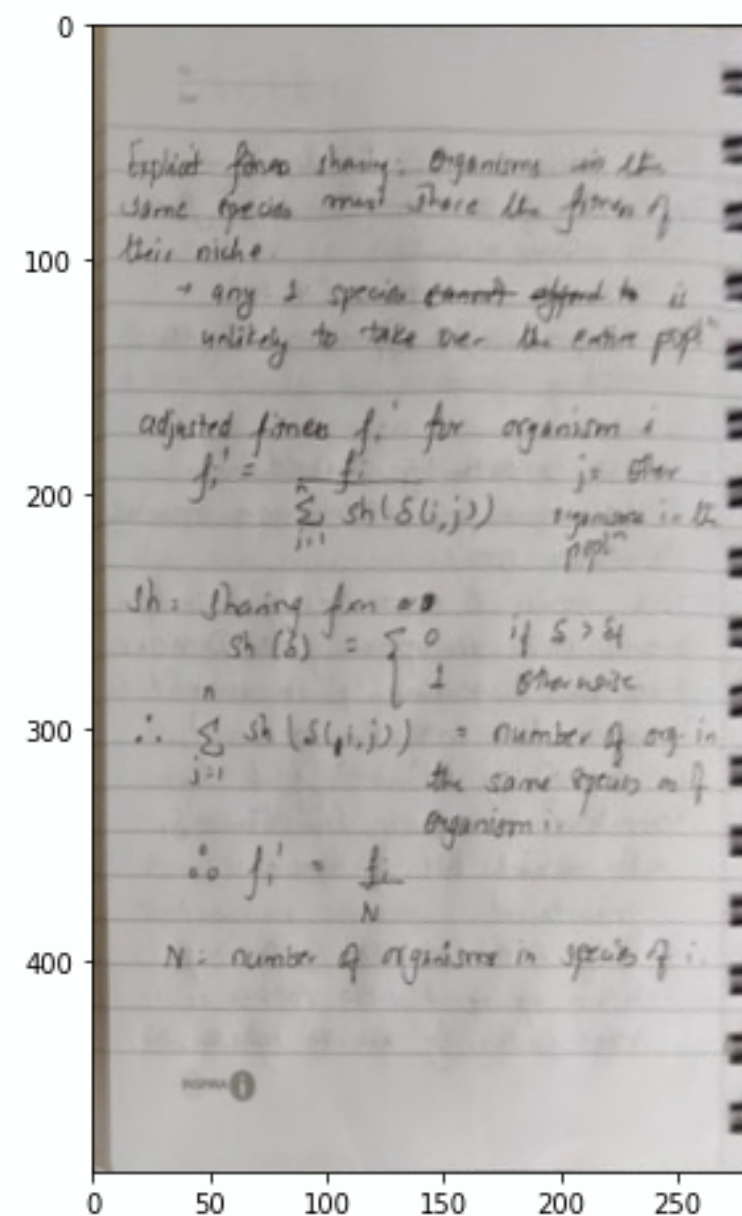 0
100
200
300
400
0 50 100 150 200 250
Explicit fitness sharing: Organisms in the
same species must share the fitness of
their niche
→ any 1 species cannot afford to is
unlikely to take over the entire popl^n
adjusted fitness fi' for organism i
fi' = fi j = other
n
Σ sh(δ(i,j)) organisms in the
j=1 popl^n
sh: sharing fxn
sh(δ) = { 0 if δ > δt
1 otherwise
n
∴ Σ sh(δ(i,j)) = number of org in
j=1 the same species as of
organism i.
∴ fi' = fi
N
N: number of organisms in species of i.
INSPIRA i